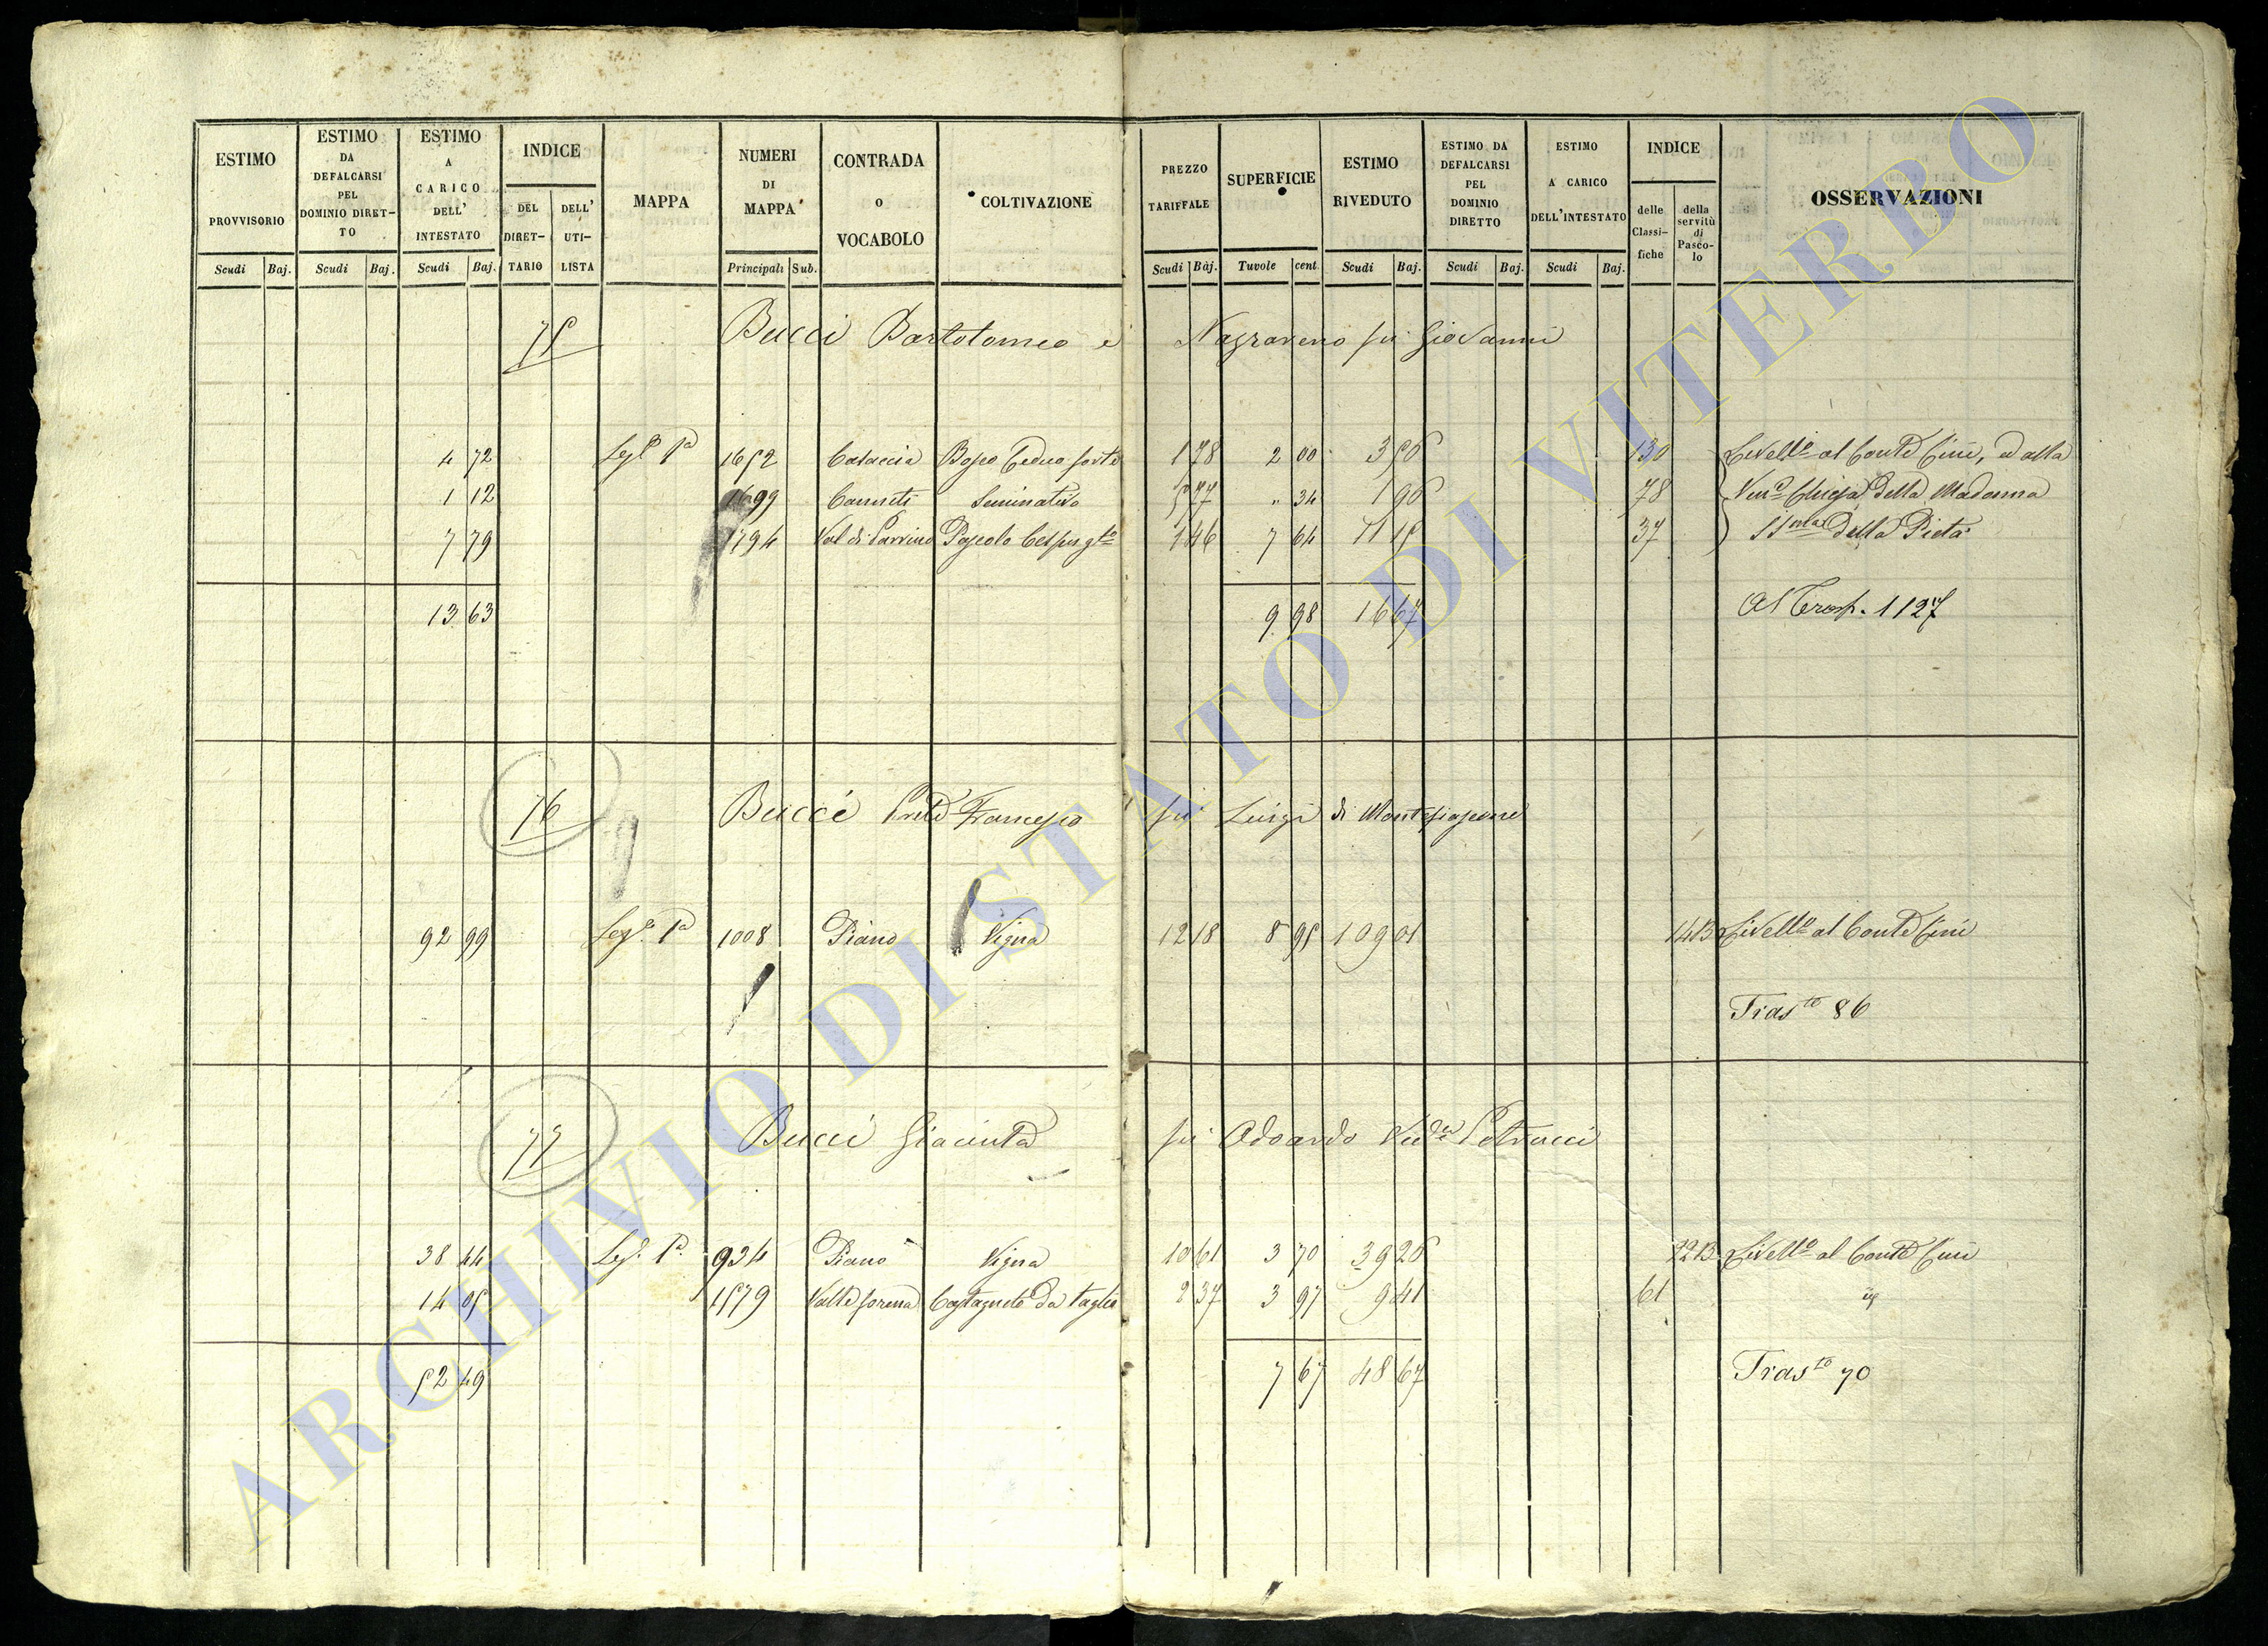 ESTIMO PROVVISORIO
ESTIMO DA DEFALCARSI PEL DOMINIO DIRET-TO
ESTIMO A CARICO DELL' INTESTATO
INDICE
DEL DIRET-TARIO
DELL' UTI-LISTA
MAPPA
NUMERI DI MAPPA
CONTRADA O VOCABOLO
COLTIVAZIONE
PREZZO TARIFFALE
SUPERFICIE
ESTIMO RIVEDUTO
ESTIMO DA DEFALCARSI PEL DOMINIO DIRETTO
ESTIMO A CARICO DELL'INTESTATO
INDICE
delle Classi-fiche
della servitù di Pasco-lo
OSSERVAZIONI
Scudi Baj. Scudi Baj. Scudi Baj. Principali Sub. Scudi Baj. Tavole cent. Scudi Baj. Scudi Baj. Scudi Baj.
75 Bucci Bartolomeo e Nazzareno fu Giovanni
4 72 Legl. Pa 1652 Casaccia Bosco Ceduo forte 1 78 2 00 3 56 130 Livello al Conte Cini, ed alla
1 12 1699 Canneti Seminativo 5 77 " 34 1 96 78 Ven. Chiesa della Madonna
7 79 1794 Val di Parrino Pascolo Cespugto 1 46 7 64 11 15 37 SSma della Pietà
13 63 9 98 16 67 Al Trasp. 1127
76 Bucci Prete Francesco fu Luigi di Montefiascone
92 99 Leg. Pa 1008 Piano Vigna 12 18 8 95 109 01 14B Livello al Conte Cini
Trasto 86
77 Bucci Giacinta fu Odoardo Veda Petrucci
38 44 Leg. P. 934 Piano Vigna 10 61 3 70 39 26 22B Livello al Conte Cini
14 05 1579 Castagneto da taglio 2 37 3 97 9 41 61
52 49 7 67 48 67 Trasto 70
ARCHIVIO DI STATO DI VITERBO